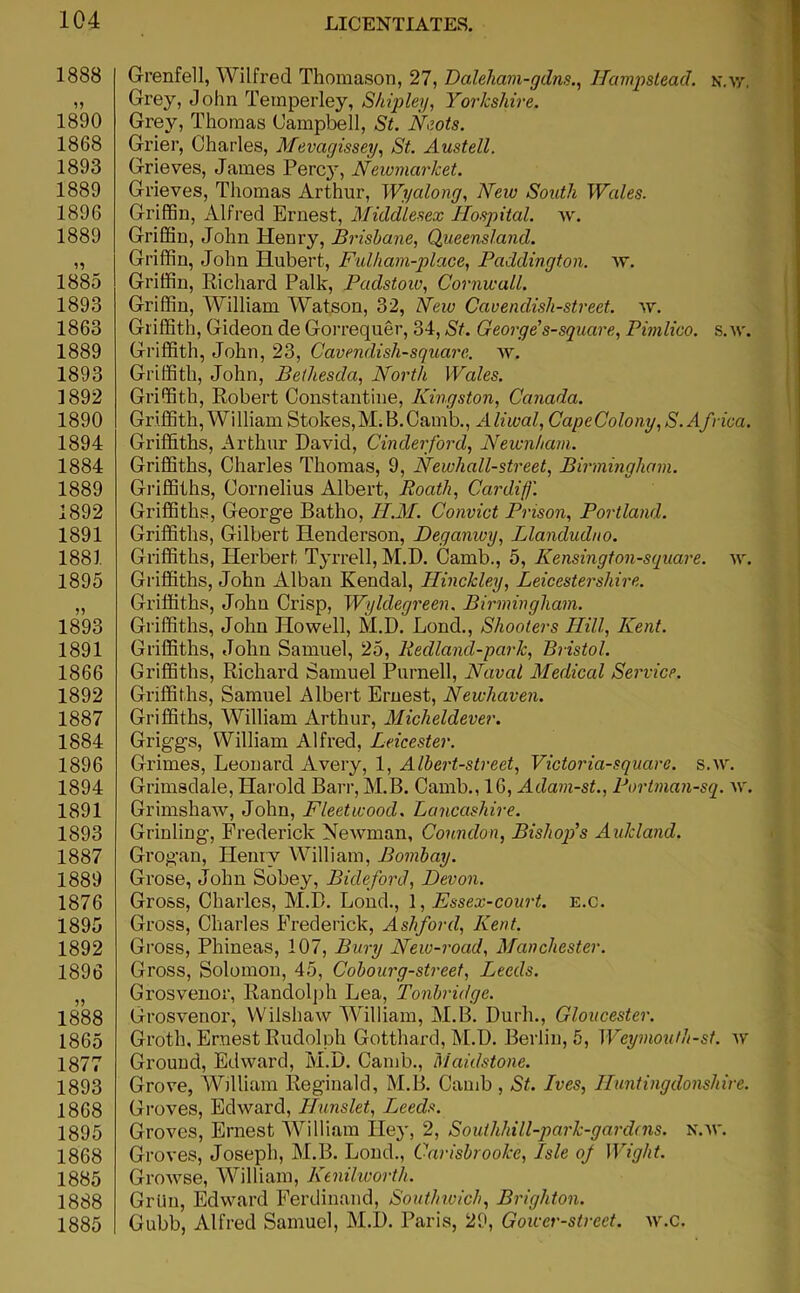 104
LICENTIATES.
1888 Grenfell, Wilfred Thomason, 27, Daleham-gdns., Hampstead. N.W.
„ Grey, John Temperley, Shipley, Yorkshire.
1890 Grey, Thomas Campbell, St. Neots.
1868 Grier, Charles, Mevagissey, St. Austell.
1893 Grieves, James Percy, Newmarket.
1889 Grieves, Thomas Arthur, Wyalong, New South Wales.
1896 Griffin, Alfred Ernest, Middlesex Hospital. W.
1889 Griffin, John Henry, Brisbane, Queensland.
„ Griffin, John Hubert, Fulham-place, Paddington. W.
1885 Griffin, Richard Palk, Padstow, Cornwall.
1893 Griffin, William Watson, 32, New Cavendish-street. W.
1863 Griffith, Gideon de Gorrequêr, 34, St. George's-square, Pimlico. S.W.
1889 Griffith, John, 23, Cavendish-square. W.
1893 Griffith, John, Bethesda, North Wales.
1892 Griffith, Robert Constantine, Kingston, Canada.
1890 Griffith, William Stokes, M.B. Camb., Aliwal, Cape Colony, S. Africa.
1894 Griffiths, Arthur David, Cinderford, Newnham.
1884 Griffiths, Charles Thomas, 9, Newhall-street, Birmingham.
1889 Griffiths, Cornelius Albert, Roath, Cardiff.
1892 Griffiths, George Batho, H.M. Convict Prison, Portland.
1891 Griffiths, Gilbert Henderson, Deganwy, Llandudno.
1881 Griffiths, Herbert Tyrrell, M.D. Camb., 5, Kensington-square. W.
1895 Griffiths, John Alban Kendal, Hinckley, Leicestershire.
„ Griffiths, John Crisp, Wyldegreen, Birmingham.
1893 Griffiths, John Howell, M.D. Lond., Shooters Hill, Kent.
1891 Griffiths, John Samuel, 25, Redland-park, Bristol.
1866 Griffiths, Richard Samuel Purnell, Naval Medical Service.
1892 Griffiths, Samuel Albert Ernest, Newhaven.
1887 Griffiths, William Arthur, Micheldever.
1884 Griggs, William Alfred, Leicester.
1896 Grimes, Leonard Avery, 1, Albert-street, Victoria-square. S.W.
1894 Grimsdale, Harold Barr, M.B. Camb., 16, Adam-st., Portman-sq. W.
1891 Grimshaw, John, Fleetwood, Lancashire.
1893 Grinling, Frederick Newman, Coundon, Bishop's Aukland.
1887 Grogan, Henry William, Bombay.
1889 Grose, John Sobey, Bideford, Devon.
1876 Gross, Charles, M.D. Lond., 1, Essex-court. E.C.
1895 Gross, Charles Frederick, Ashford, Kent.
1892 Gross, Phineas, 107, Bury New-road, Manchester.
1896 Gross, Solomon, 45, Cobourg-street, Leeds.
„ Grosvenor, Randolph Lea, Tonbridge.
1888 Grosvenor, Wilshaw William, M.B. Durh., Gloucester.
1865 Groth, Ernest Rudolph Gotthard, M.D. Berlin, 5, Weymouth-st. W
1877 Ground, Edward, M.D. Camb., Maidstone.
1893 Grove, William Reginald, M.B. Camb, St. Ives, Huntingdonshire.
1868 Groves, Edward, Hunslet, Leeds.
1895 Groves, Ernest William Hey, 2, Southhill-park-gardens. N.W.
1868 Groves, Joseph, M.B. Lond., Carisbrooke, Isle of Wight.
1885 Growse, William, Kenilworth.
1888 Grün, Edward Ferdinand, Southwick, Brighton.
1885 Gubb, Alfred Samuel, M.D. Paris, 29, Gower-street. W.C.